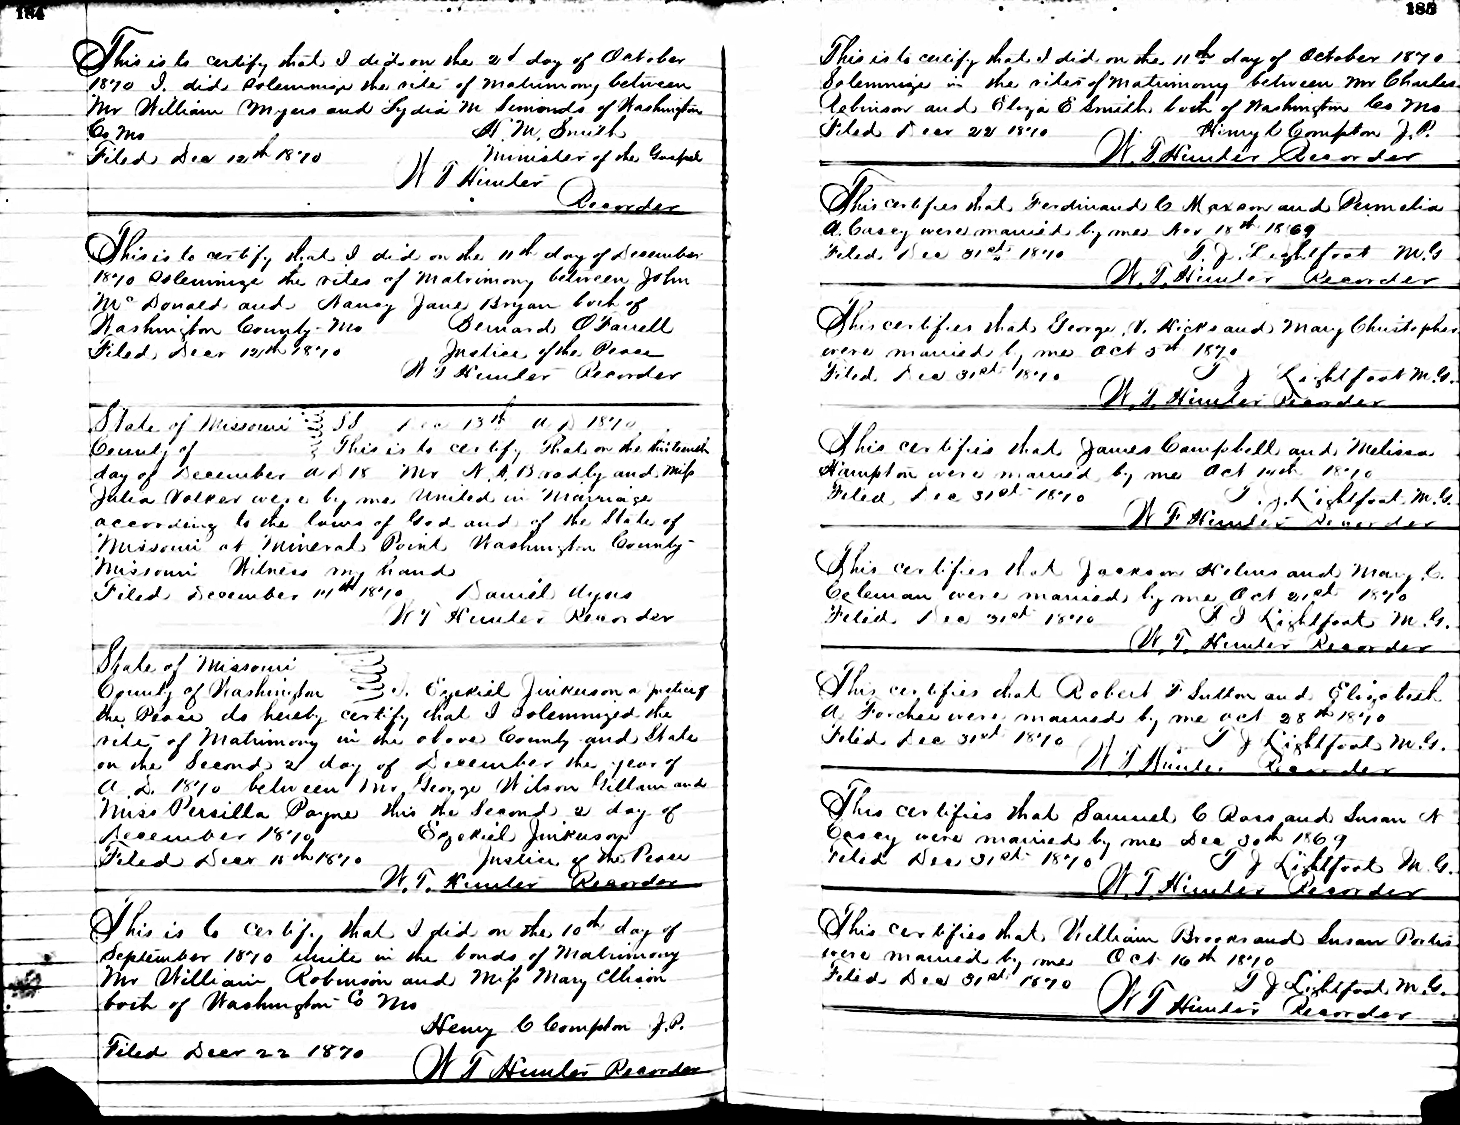 184
This is to certify that I did on the 2d day of October
1870 I did solemnize the rites of Matrimony between
Mr William Myers and Lydia M Simonds of Washington
Co Mo H. M. Smith
Filed Dec 12th 1870 Minister of the Gospel
W T Hunter
Recorder
This is to certify that I did on the 11th day of December
1870 Solemnize the rites of Matrimony between John
Mc Donald and Nancy Jane Bryan both of
Washington County Mo Bernard O'Farrell
Filed Decr 12th 1870 Justice of the Peace
W T Hunter Recorder
State of Missouri SS Dec 13th A D 1870
County of This is to certify That on the thirteenth
day of December A D 18 Mr Bradly and Miss
Julia were by me United in Marriage
according to the laws of God and of the State of
Missouri at Mineral Point Washington County
Missouri Witness my hand
Filed December 14th 1870 Daniel
W T Hunter Recorder
State of Missouri
County of Washington I, Ezekiel Jinkerson a justice of
the Peace do hereby certify that I solemnized the
rites of Matrimony in the above County and State
on the Second 2 day of December the year of
A. D. 1870 between Mr George Wilson Gilliam and
Miss Persilla Payne this the Second 2 day of
December 1870 Ezekiel Jinkerson
Filed Decr 1870 Justice of the Peace
W. T. Hunter Recorder
This is to certify that I did on the 10th day of
September 1870 Unite in the bonds of Matrimony
Mr William Robinson and Miss Mary Ellison
both of Washington Co Mo
Henry C Compton J. P.
Filed Decr 22 1870
W T Hunter Recorder
185
This is to certify that I did on the 11th day of October 1870
Solemnize in the rites of Matrimony between Mr Charles
Robinson and Eliza E Smith both of Washington Co Mo
Filed Decr 22 1870 Henry C Compton J. P.
W T Hunter Recorder
This certifies that Ferdinand C Maxson and Permelia
A. Casey were married by me Nov 18th 1869
Filed Dec 31st 1870 T. J. Lightfoot M. G
W. T. Hunter Recorder
This certifies that George Hicks and Mary Christopher
were married by me Oct 5th 1870
Filed Dec 31st 1870 T J Lightfoot M. G.
W. T. Hunter Recorder
This certifies that James Campbell and Melissa
Hampton were married by me Oct 1870
Filed Dec 31st 1870 T. J. Lightfoot M. G.
W T Hunter Recorder
This certifies that Jackson Helms and Mary C.
Coleman were married by me Oct 21st 1870
Filed Dec 31st 1870 T J Lightfoot M. G.
W. T. Hunter Recorder
This certifies that Robert F Sutton and Elizabeth
A Forchee were married by me Oct 28th 1870
Filed Dec 31st 1870 T J Lightfoot M. G.
W T Hunter Recorder
This certifies that Samuel C Ross and Susan N
Casey were married by me Dec 30th 1869
Filed Dec 31st 1870 T J Lightfoot M. G.
W. T. Hunter Recorder
This certifies that William Brooks and Susan Portis
were married by me Oct 16th 1870
Filed Dec 31st 1870 T J Lightfoot M. G.
W T Hunter Recorder